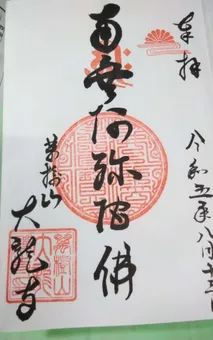 奉拝
令和五年八月
南無阿弥陀佛
大龍寺